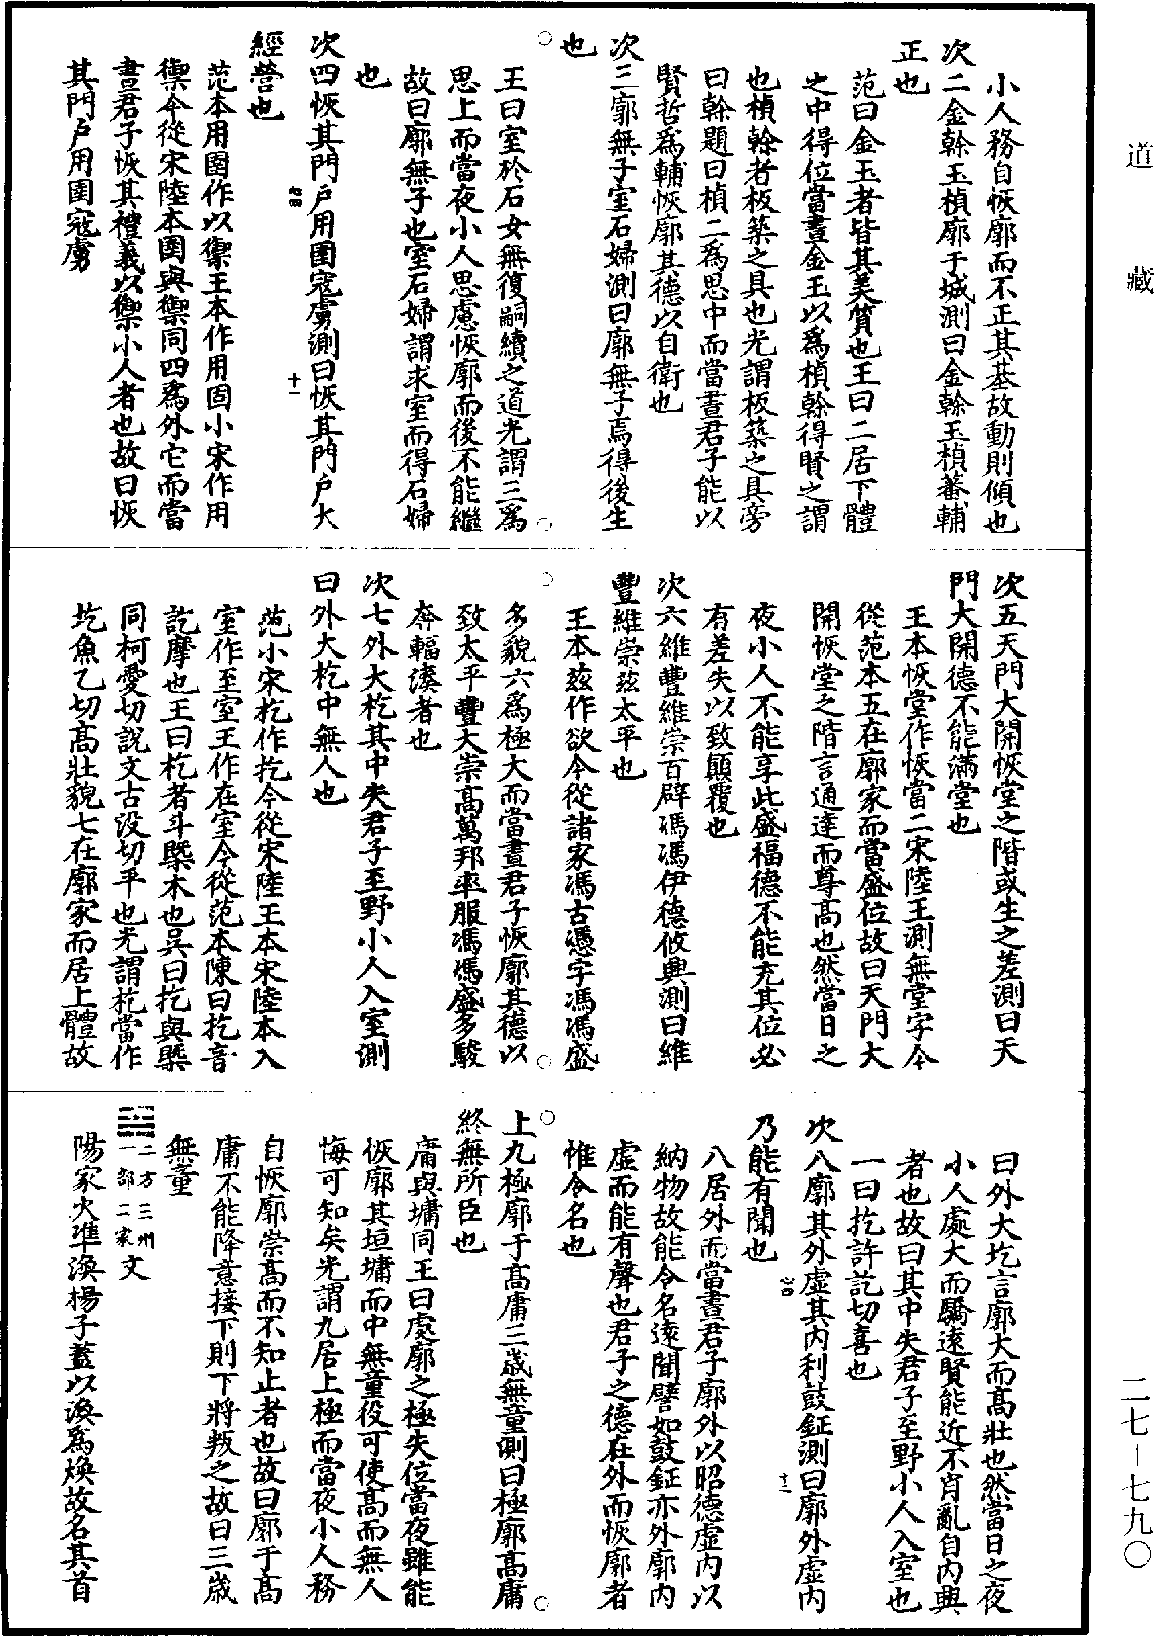 小人務自恢廓而不正其基故動則傾也
次二金榦玉楨廓于城測曰金榦玉楨蕃輔
正也
范曰金玉者皆其美質也王曰二居下體
之中得位當晝金玉以爲楨榦得賢之謂
也楨榦者板築之具也光謂板築之具旁
曰榦題曰楨二爲思中而當晝君子能以
賢哲爲輔恢廓其德以自衛也
次三廓無子室石婦測曰廓無子焉得後生
也
王曰室於石女無復嗣續之道光謂三爲
思上而當夜小人思慮恢廓而後不能繼
故曰廓無子也室石婦謂求室而得石婦
也
次四恢其門戶用圉寇虜測曰恢其門戶大
經營也
范本用圉作以禦王本作用固小宋作用
禦今從宋陸本圉與禦同四爲外它而當
晝君子恢其禮義以禦小人者也故曰恢
其門戶用圉寇虜
次五天門大開恢堂之階或生之差測曰天
門大開德不能滿堂也
王本恢堂作恢當二宋陸王測無堂字今
從范本五在廓家而當盛位故曰天門大
開恢堂之階言通達而尊高也然當日之
夜小人不能享此盛福德不能充其位必
有差失以致顛覆也
次六維豐維崇百辟馮馮伊德攸興測曰維
豐維崇茲太平也
王本茲作欲今從諸家馮古憑字馮馮盛
多貌六爲極大而當晝君子恢廓其德以
致太平豐大崇高萬邦率服馮馮盛多駿
奔輻湊者也
次七外大杚其中失君子至野小人入室測
曰外大杚中無人也
范小宋杚作扢今從宋陸王本宋陸本入
室作至室王作在室今從范本陳曰扢音
訖摩也王曰杚者斗槩木也吳曰扢與槩
同柯愛切說文古沒切平也光謂杚當作
圪魚乙切高壯貌七在廓家而居上體故
曰外大圪言廓大而高壯也然當日之夜
小人處大而驕遠賢能近不肖亂自內興
者也故曰其中失君子至野小人入室也
一曰扢許訖切喜也
次八廓其外虛其內利鼓鉦測曰廓外虛內
乃能有聞也
八居外而當晝君子廓外以昭德虛內以
納物故能令名遠聞譬如鼓鉦亦外廓內
虛而能有聲也君子之德在外而恢廓者
惟令名也
上九極廓于高庸三歲無童測曰極廓高庸
終無所臣也
庸與墉同王曰處廓之極失位當夜雖能
恢廓其垣墉而中無童役可使高而無人
悔可知矣光謂九居上極而當夜小人務
自恢廓崇高而不知止者也故曰廓于高
庸不能降意接下則下將叛之故曰三歲
無童
二方三州
一部二家文
陽家火準渙楊子蓋以渙爲煥故名其首
道藏
二七－七九〇